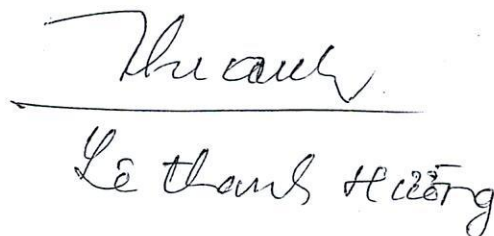 Thuanh
Lê thanh Hường